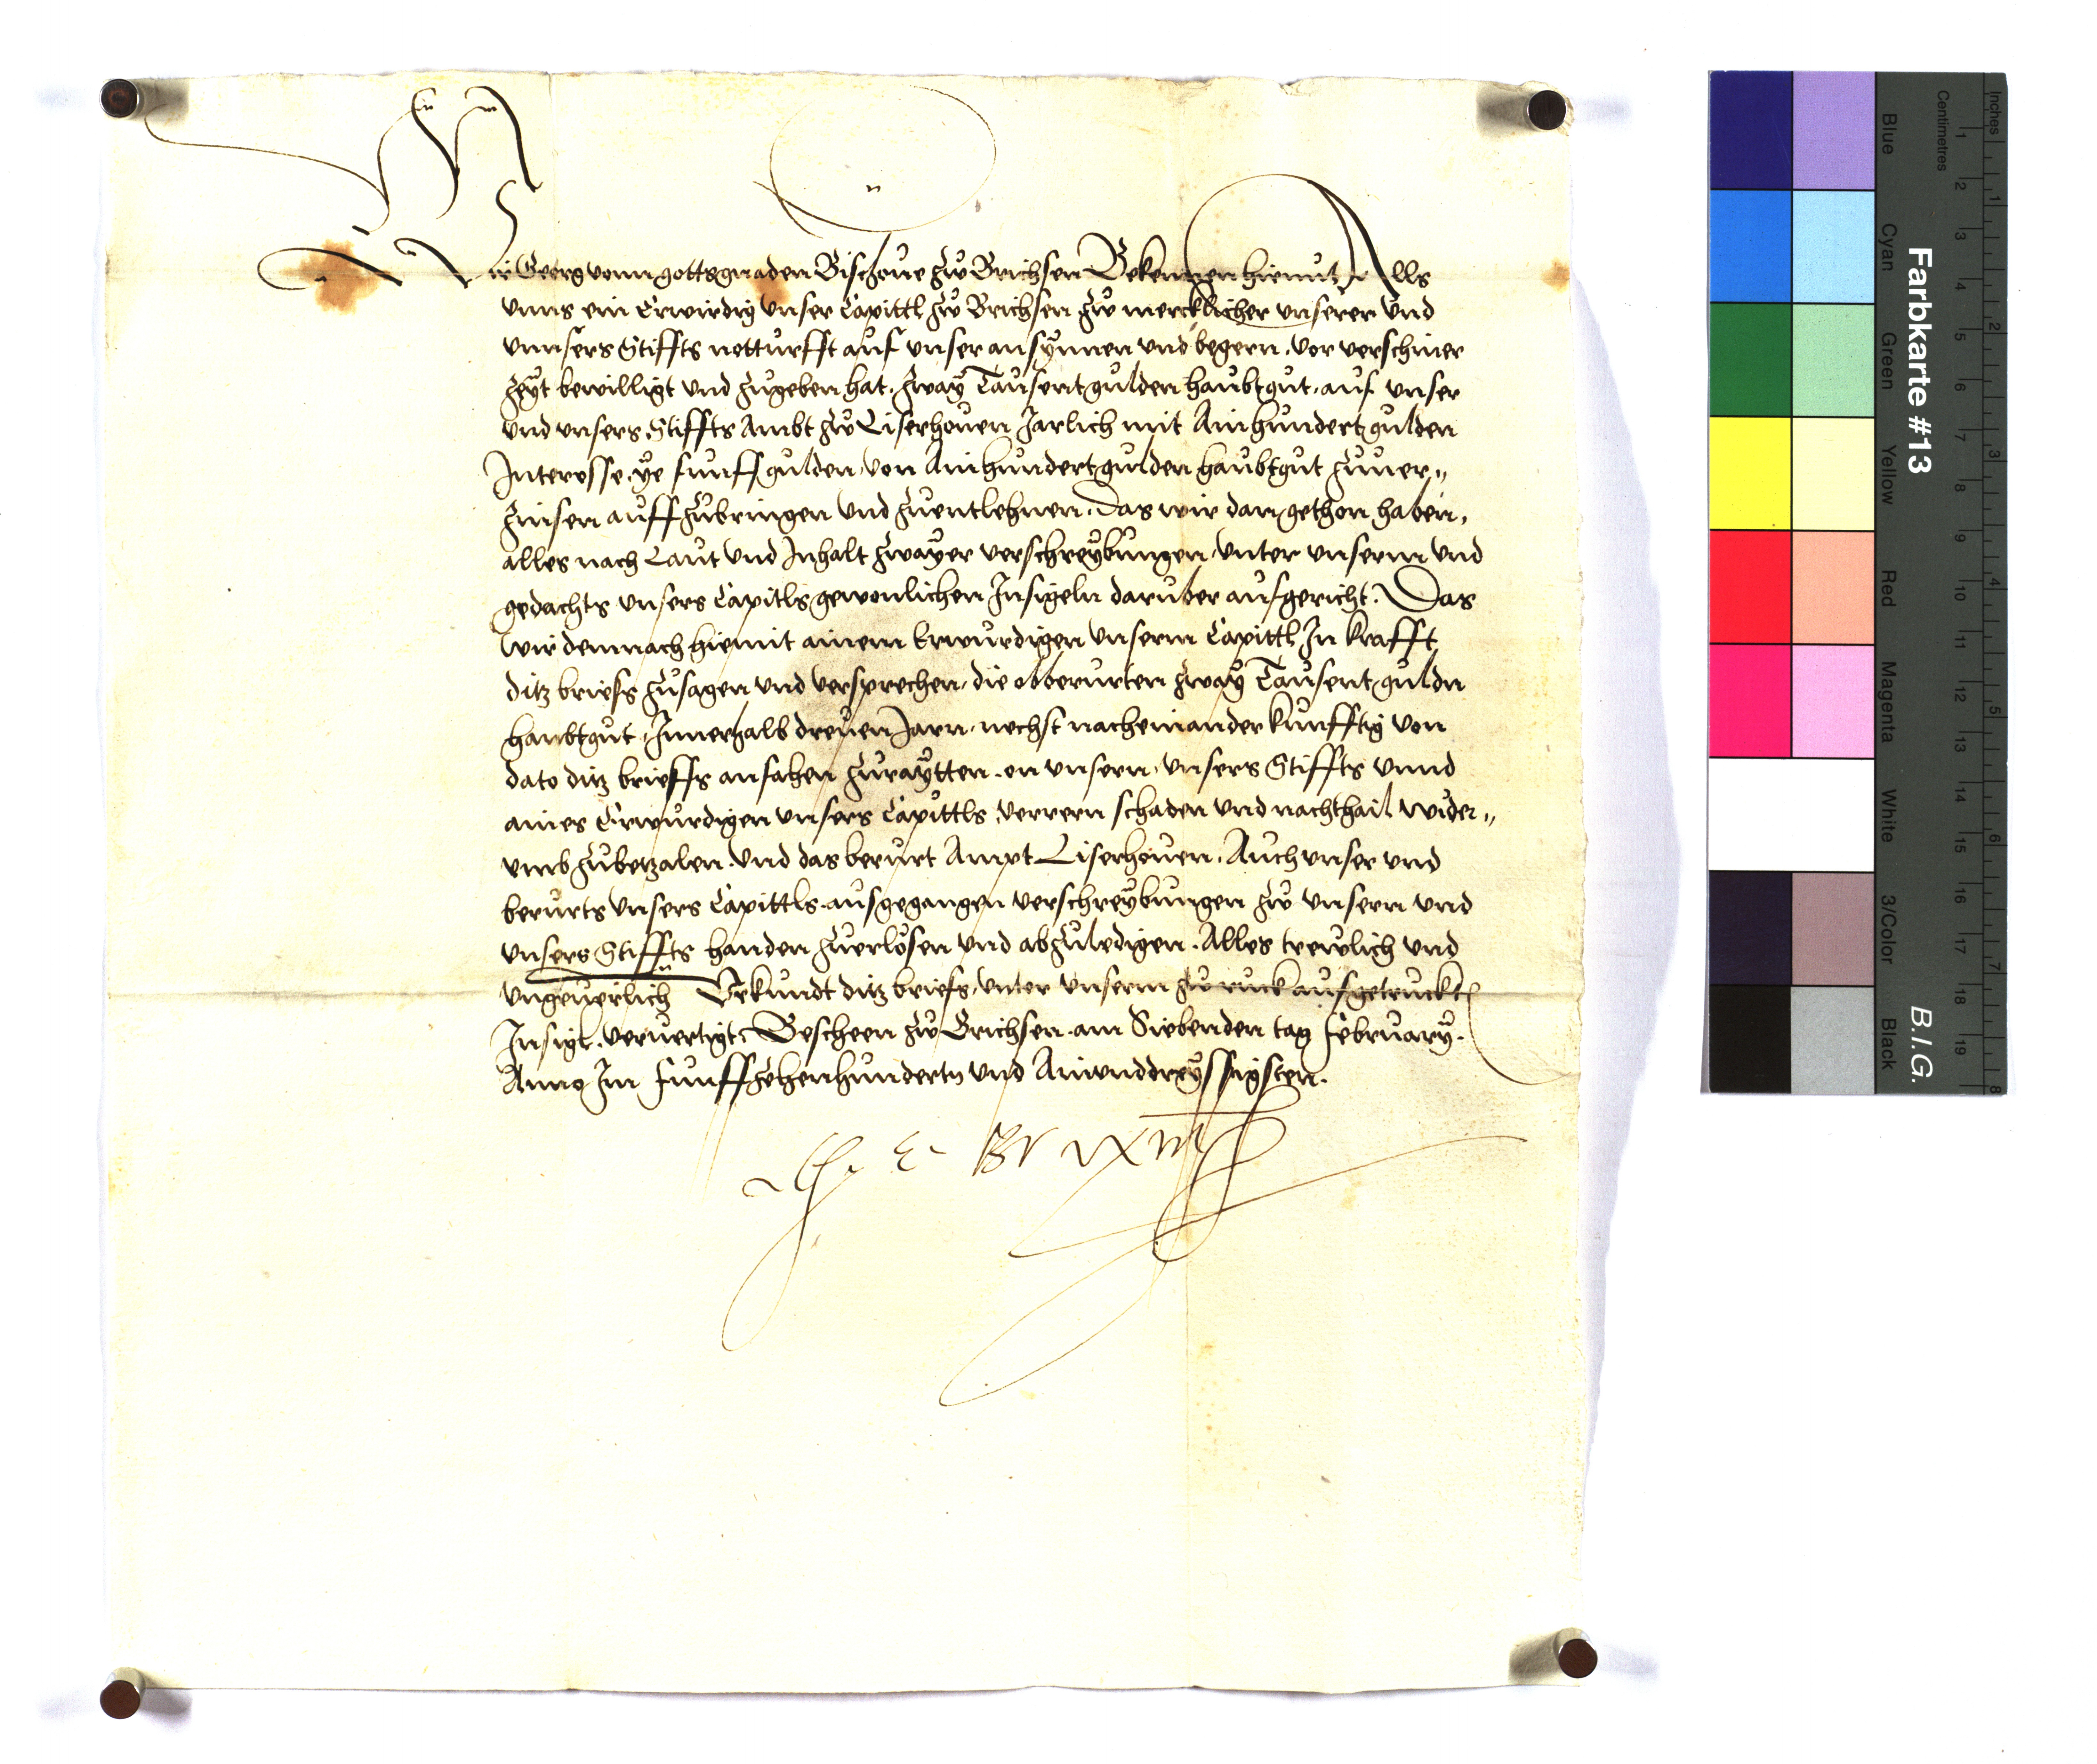 Wir Georg vonn gottsgnaden Bischoue zw Brichsen Bekennen hiemit, Alls
vnns ein Erwirdig vnser Capittl zw Brichsen zw mercklicher vnserer vnd
vnnsers Stiffts notturfft auf vnser ansynnen vnd begern, vor verschiner
zeyt bewilligt vnd zugeben hat, zway Tausent gulden haubtgut, auf vnser
vnd vnsers Stiffts Ambt zw Liserhouen Jarlich mit Ainhundert gulden
Interesse, ye funff gulden, von Ainhundert gulden haubtgut zuuer„
zinsen auffzubringen vnd zuentlehnen. Das wir dan gethon haben,
alles nach Laut vnd Inhalt zwayer verschreybungen, vnter vnserm vnd
gedachts vnsers Capitls gewonlichen Insigeln daruber ausgericht. Das
wir demnach hiemit ainem Erwurdigen vnserm Capittl In krafft
ditz briefs zusagen vnd versprechen, die obberurten zway Tausent guldn
haubtgut, Innerhalb dreuen Jarn, nechst nacheinander kunfftig von
dato ditz brieffs anfahen zuraytten, on vnsern, vnsers Stiffts vnnd
aines Erwurdigen vnsers Capittls, verrern schaden vnd nachthail wider„
vmb zubetzalen, vnd das berurt Ampt Liserhouen, Auch vnser vnd
berurts vnsers Capittls ausgegangen verschreybungen zw vnsern vnd
vnsers Stiffts handen zuerlösen vnd abzuledigen. Alles trewlich vnd
vngeuerlich Vrkundt ditz briefs, vnter vnserm zw ruck aufgetruckten
Insigl, veruertigt. Bescheen zw Brichsen am Siebenden tag February.
Anno Im Funffzehenhundertn vnd Ainunddreyssigisten.
G. E. Brixin
Farbkarte #13
B.I.G.
Inches
Centimetres
1 2 3 4 5 6 7 8 9 10 11 12 13 14 15 16 17 18 19
1 2 3 4 5 6 7 8
Blue
Cyan
Green
Yellow
Red
Magenta
White
3/Color
Black